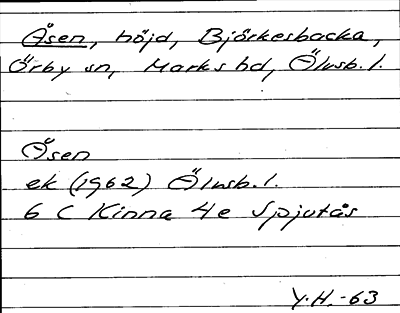 Åsen, höjd, Björkesbacka,
Örby sn, Marks hd, Älvsb. l.
Åsen
ek (1962) Älvsb. l.
6 C Kinna 4e Spjutås
Y.H.-63